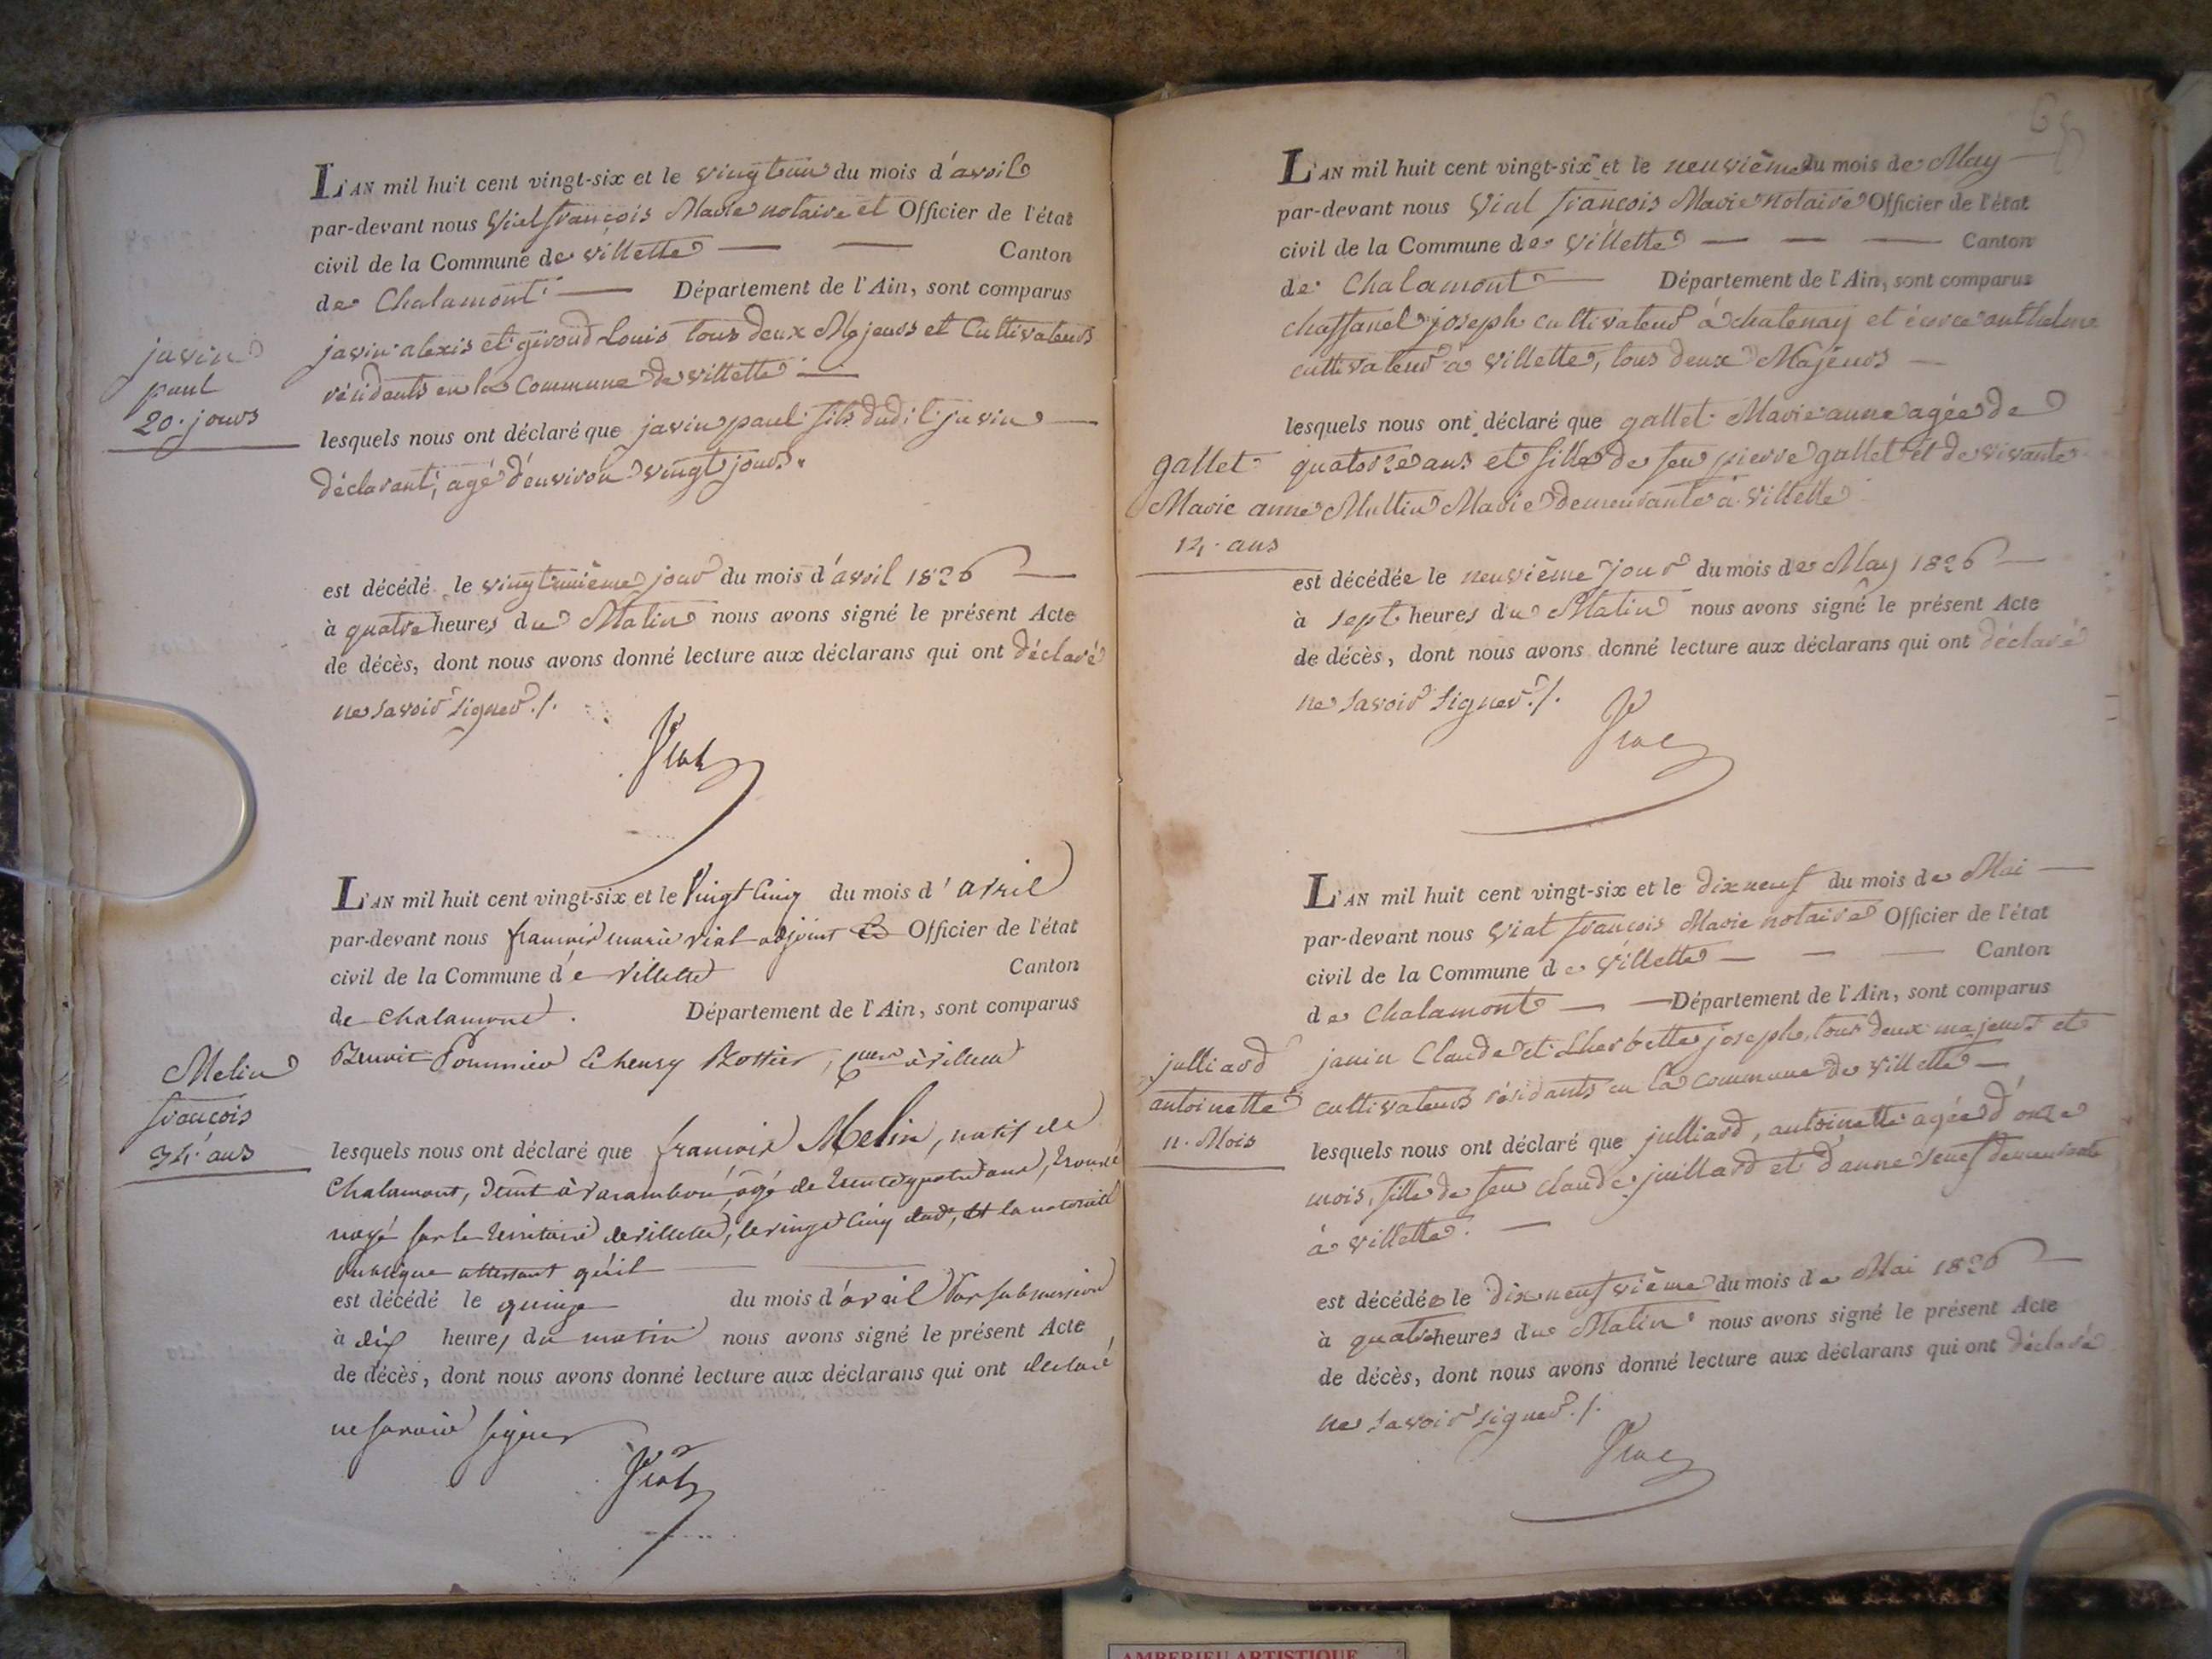 L'AN mil huit cent vingt-six et le vingt un du mois d'avril
par-devant nous Vial françois Marie notaire et Officier de l'état
civil de la Commune de villette Canton
de Chalamont Département de l'Ain, sont comparus
javin alexis et giroud Louis tous deux Majeurs et Cultivateurs
résidants en la Commune de villette
javin
paul
20. jours
lesquels nous ont déclaré que javin paul fils dudit javin
déclarant, agé d'environ vingt jours.
est décédé le vingtunième jour du mois d'avril 1826
à quatre heures du Matin nous avons signé le présent Acte
de décès, dont nous avons donné lecture aux déclarans qui ont déclaré
ne savoir signer ./.
Vial
L'AN mil huit cent vingt-six et le Vingt Cinq du mois d'avril
par-devant nous françois marie vial adjoint Officier de l'état
civil de la Commune de villette Canton
de Chalamont. Département de l'Ain, sont comparus
Benoit Pommier & henry Rottier, à villette
Melin
françois
34. ans
lesquels nous ont déclaré que françois Melin, natif de
Chalamont, demt à varambon, âgé de trente quatre ans, trouvé
noyé sur le territoire de villette, le vingt Cinq dud, et la notoriété
Publique attestant qu'il
est décédé le quinze du mois d'avril Par submersion
à dix heures du matin nous avons signé le présent Acte
de décès, dont nous avons donné lecture aux déclarans qui ont déclaré
ne savoir signer
Vial
L'AN mil huit cent vingt-six et le neuvième du mois de May
par-devant nous Vial françois Marie notaire Officier de l'état
civil de la Commune de villette Canton
de Chalamont Département de l'Ain, sont comparus
chaffanel joseph cultivateur à chatenay et anthelme
cultivateur à villette, tous deux Majeurs
lesquels nous ont déclaré que gallet Marie anne agée de
quatorze ans et fille de feu pierre gallet et de vivante
Mullin Marie demeurante à villette
gallet
Marie anne
14. ans
est décédée le neuvième jour du mois de May 1826
à sept heures du Matin nous avons signé le présent Acte
de décès, dont nous avons donné lecture aux déclarans qui ont déclaré
ne savoir signer ./.
Vial
L'AN mil huit cent vingt-six et le dix neuf du mois de Mai
par-devant nous Vial françois Marie notaire Officier de l'état
civil de la Commune de villette Canton
de Chalamont Département de l'Ain, sont comparus
janin Claude et Lherbette joseph, tous deux majeurs et
cultivateurs résidants en la commune de villette
julliard
antoinette
11. Mois
lesquels nous ont déclaré que julliard, antoinette agée d'onze
mois, fille de feu claude juillard et d'anne demeurante
à villette.
est décédée le dixneufvième du mois de Mai 1826
à quatre heures du Matin nous avons signé le présent Acte
de décès, dont nous avons donné lecture aux déclarans qui ont déclaré
ne savoir signer ./.
Vial
AMBERIEU ARTISTIQUE